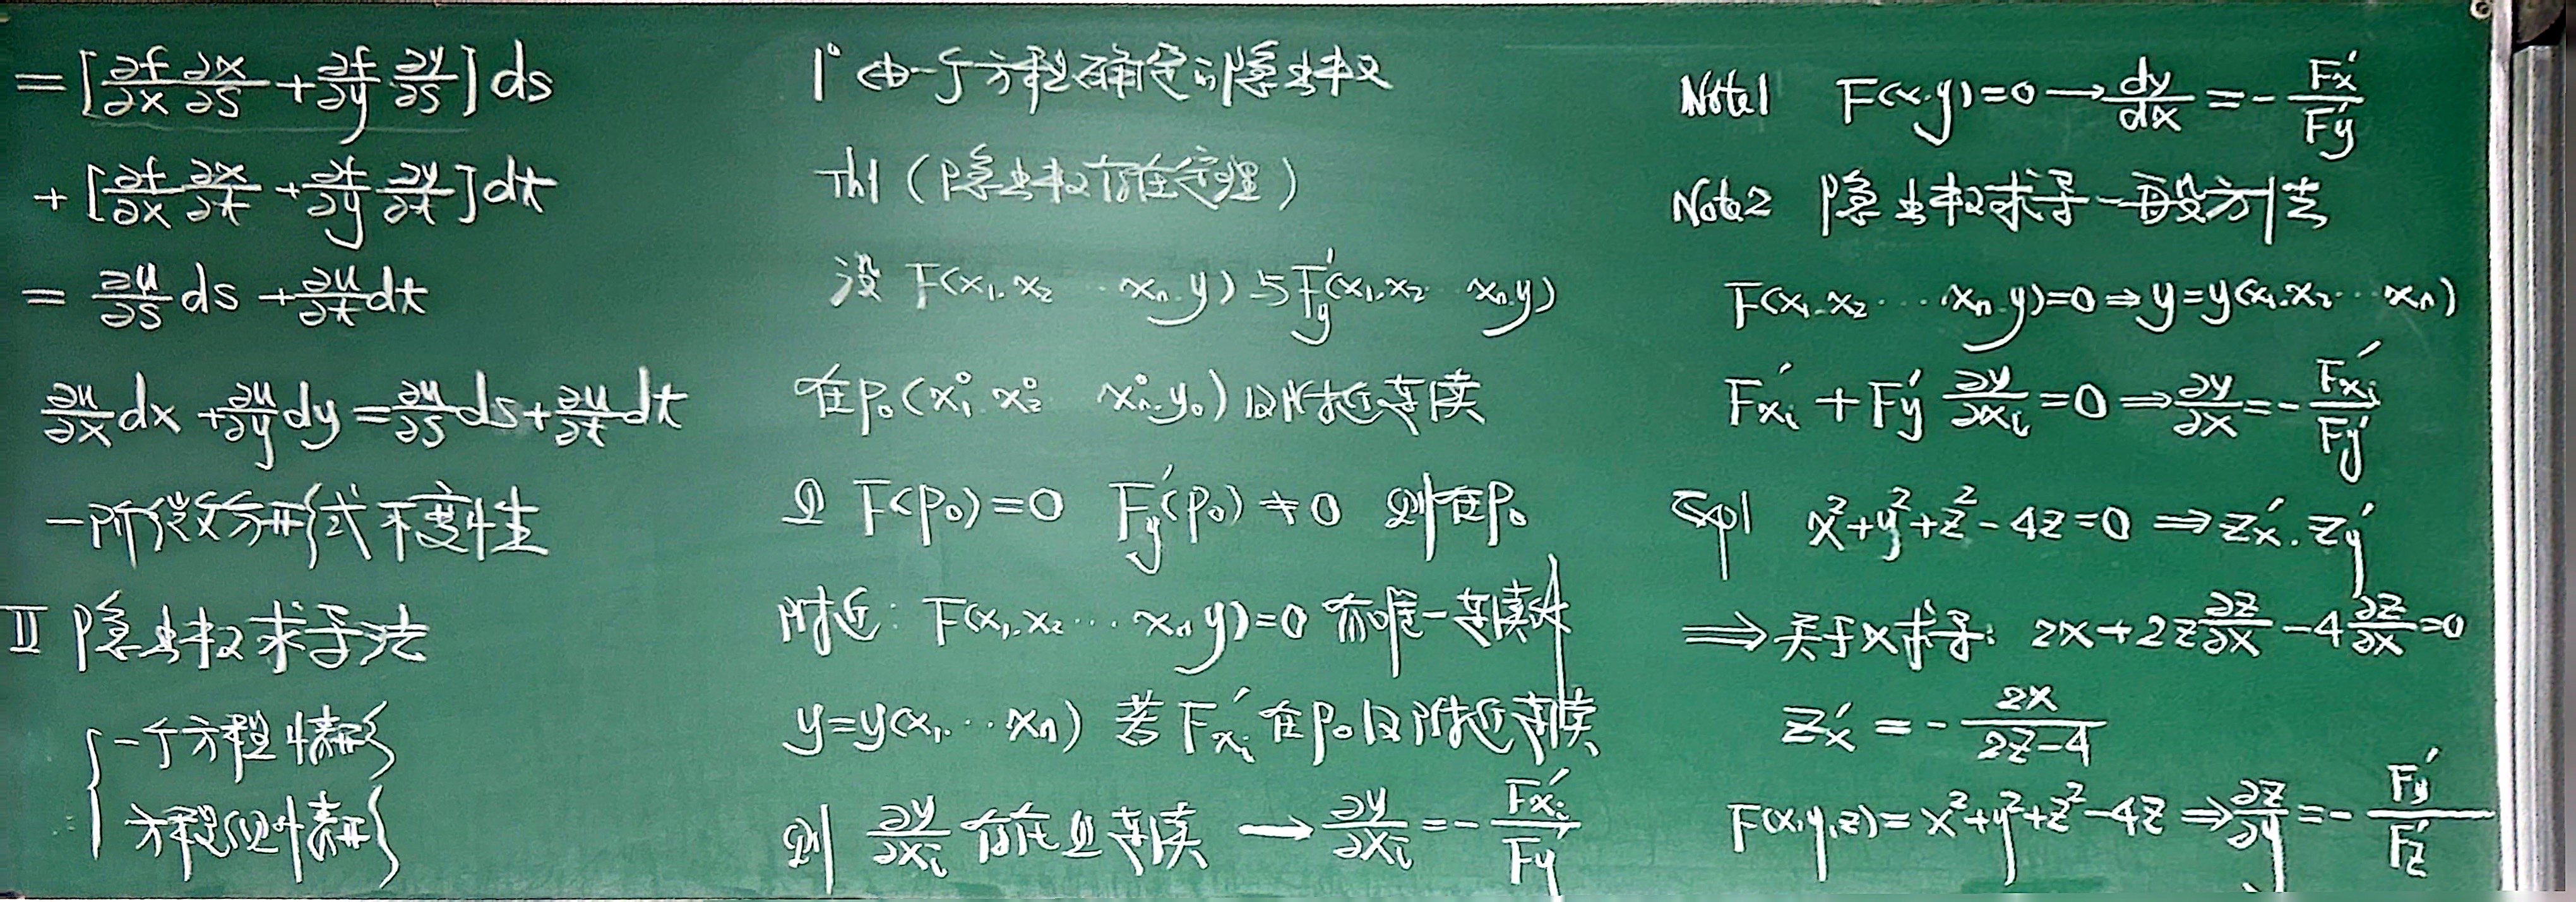 = [∂f/∂x ∂x/∂s + ∂f/∂y ∂y/∂s] ds
+ [∂f/∂x ∂x/∂t + ∂f/∂y ∂y/∂t] dt
= ∂u/∂s ds + ∂u/∂t dt
∂u/∂x dx + ∂u/∂y dy = ∂u/∂s ds + ∂u/∂t dt
一阶微分形式不变性
II 隐函数求导法
{ 一个方程情形
方程组情形
1° 由一个方程确定的隐函数
Th1 (隐函数存在定理)
设 F(x₁.x₂ ‥ xₙ.y) 与 F'y(x₁.x₂ ‥ xₙ.y)
在P₀(x₁°.x₂° xₙ°.y₀)及附近连续
且 F(P₀)=0 F'y(P₀)≠0 则在P₀
附近: F(x₁.x₂… xₙ y)=0 有唯一连续
y=y(x₁.‥xₙ) 若 F'xᵢ 在P₀及附近连续
则 ∂y/∂xᵢ 存在且连续 → ∂y/∂xᵢ = - F'xᵢ/F'y
Note1 F(x.y)=0 → dy/dx = - F'x/F'y
Note2 隐函数求导一般方法
F(x₁.x₂… xₙ.y)=0 ⇒ y=y(x₁.x₂…xₙ)
F'xᵢ + F'y ∂y/∂xᵢ = 0 ⇒ ∂y/∂x = - F'xᵢ/F'y
Exp1 x²+y²+z²-4z=0 ⇒ z'x. z'y
⇒ 关于x求导: 2x+2z ∂z/∂x - 4 ∂z/∂x = 0
z'x = - 2x/(2z-4)
F(x,y,z)= x²+y²+z²-4z ⇒ ∂z/∂y = - F'y/F'z